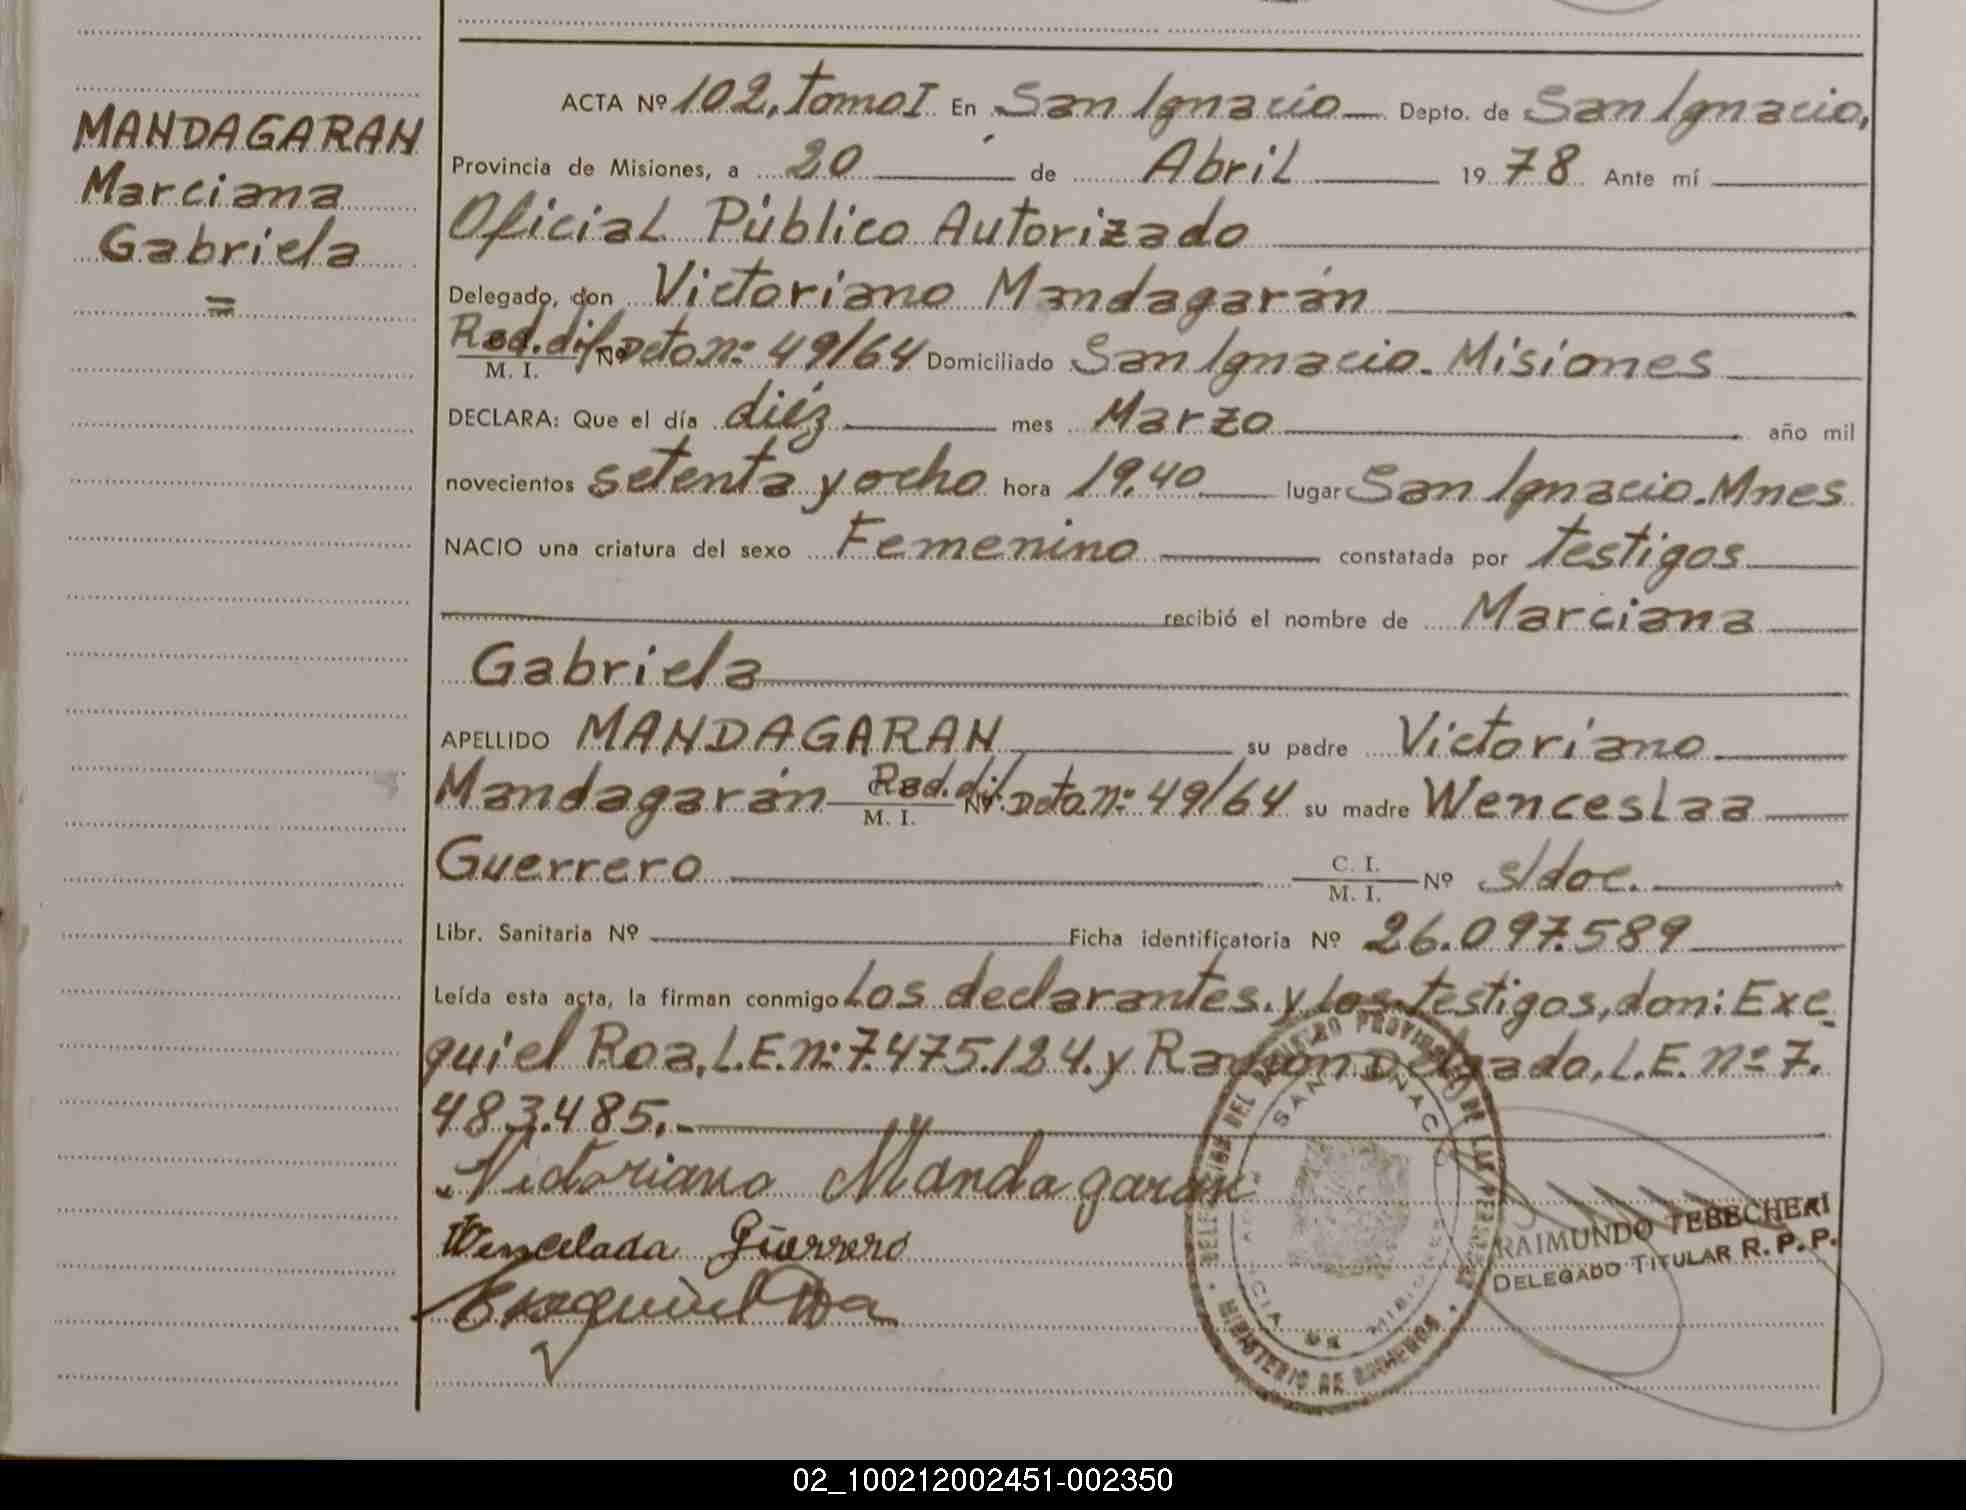 MANDAGARAN
Marciana
Gabriela
=
ACTA Nº 102, tomo I En San Ignacio Depto. de San Ignacio,
Provincia de Misiones, a 20 de Abril 1978 Ante mí
Oficial Público Autorizado
Delegado, don Victoriano Mandagarán
Rad. dif. Dcto. nº 49/64 Domiciliado San Ignacio. Misiones
M. I. Nº
DECLARA: Que el día diéz mes Marzo año mil
novecientos setenta y ocho hora 19,40 lugar San Ignacio. Mnes
NACIO una criatura del sexo Femenino constatada por testigos
recibió el nombre de Marciana
Gabriela
APELLIDO MANDAGARAN su padre Victoriano
Mandagarán Rad. dif. Dcto. nº 49/64 su madre Wenceslaa
M. I. Nº
Guerrero C. I. M. I. Nº s/doc.
Libr. Sanitaria Nº Ficha identificatoria Nº 26.097.589
Leída esta acta, la firman conmigo Los declarantes. y los testigos, don: Exe
quiel Roa, L.E. nº 7.475.124. y Ramon Delgado, L.E. nº 7.
483.485.-
Victoriano Mandagaran
Wencelada Guerrero
Exequiel Roa
DELEGACION DEL REGISTRO PROVINCIAL DE LAS PERSONAS
MINISTERIO DE GOBIERNO
SAN IGNACIO
PROVINCIA DE MISIONES
RAIMUNDO TEBECHERI
DELEGADO TITULAR R. P. P.
02_100212002451-002350